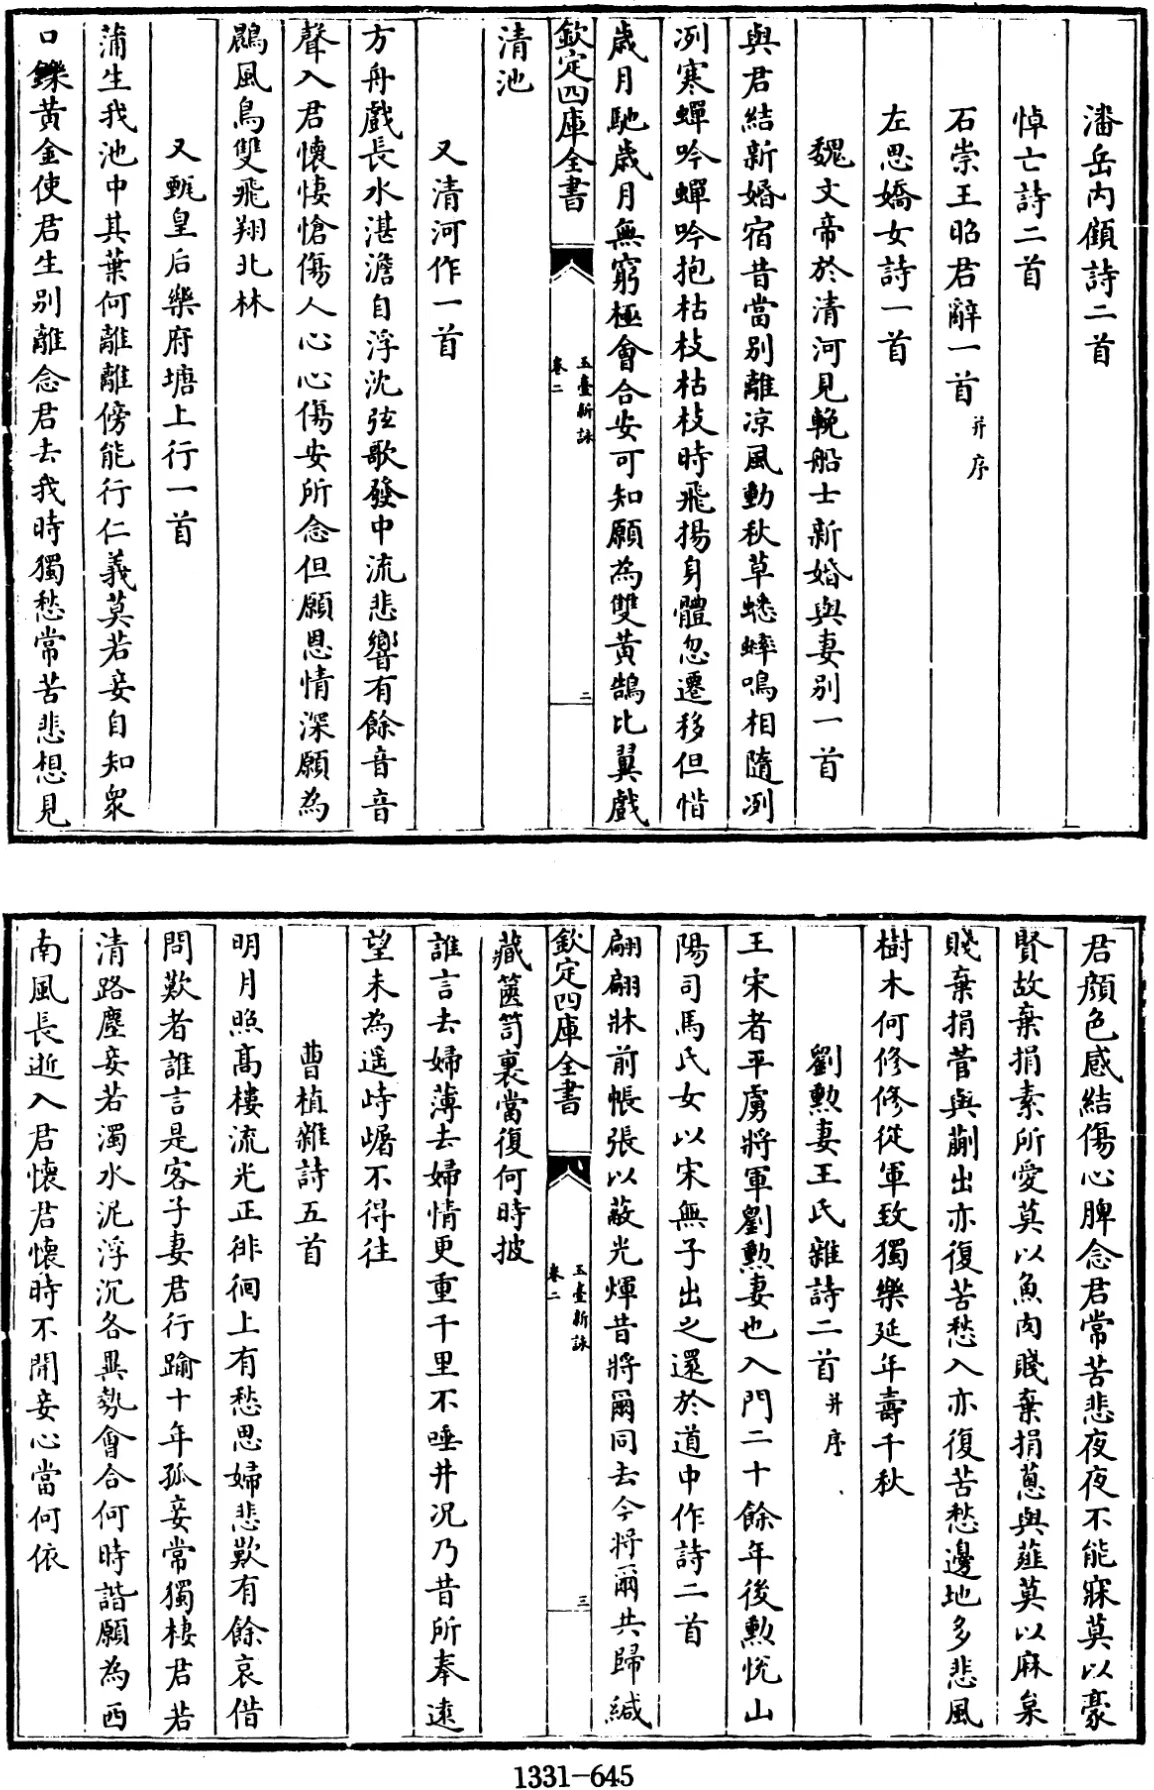 潘岳内顧詩二首
悼亡詩二首
石崇王昭君辭一首并序
左思嬌女詩一首
魏文帝於清河見輓船士新婚與妻別一首
與君結新婚宿昔當別離凉風動秋草蟋蟀鳴相隨冽
冽寒蟬吟蟬吟抱枯枝枯枝時飛揚身體忽遷移但惜
歲月馳歲月無窮極會合安可知願為雙黃鵠比翼戲
欽定四庫全書
玉臺新詠
卷二
二
清池
又清河作一首
方舟戲長水湛澹自浮沈弦歌發中流悲響有餘音音
聲入君懷悽愴傷人心心傷安所念但願恩情深願為
鷐風鳥雙飛翔北林
又甄皇后樂府塘上行一首
蒲生我池中其葉何離離傍能行仁義莫若妾自知衆
口鑠黃金使君生別離念君去我時獨愁常苦悲想見
君顏色感結傷心脾念君常苦悲夜夜不能寐莫以豪
賢故棄捐素所愛莫以魚肉賤棄捐蔥與薤莫以麻枲
賤棄捐菅與蒯出亦復苦愁入亦復苦愁邊地多悲風
樹木何修修從軍致獨樂延年壽千秋
劉勲妻王氏雜詩二首并序
王宋者平虜將軍劉勲妻也入門二十餘年後勲悅山
陽司馬氏女以宋無子出之還於道中作詩二首
翩翩牀前帳張以蔽光煇昔將爾同去今將爾共歸緘
欽定四庫全書
玉臺新詠
卷二
三
藏篋笥裏當復何時披
誰言去婦薄去婦情更重千里不唾井況乃昔所奉遠
望未為遥峙㟦不得往
曹植雜詩五首
明月照髙樓流光正徘徊上有愁思婦悲歎有餘哀借
問歎者誰言是客子妻君行踰十年孤妾常獨棲君若
清路塵妾若濁水泥浮沉各異勢會合何時諧願為西
南風長逝入君懷君懷時不開妾心當何依
1331-645